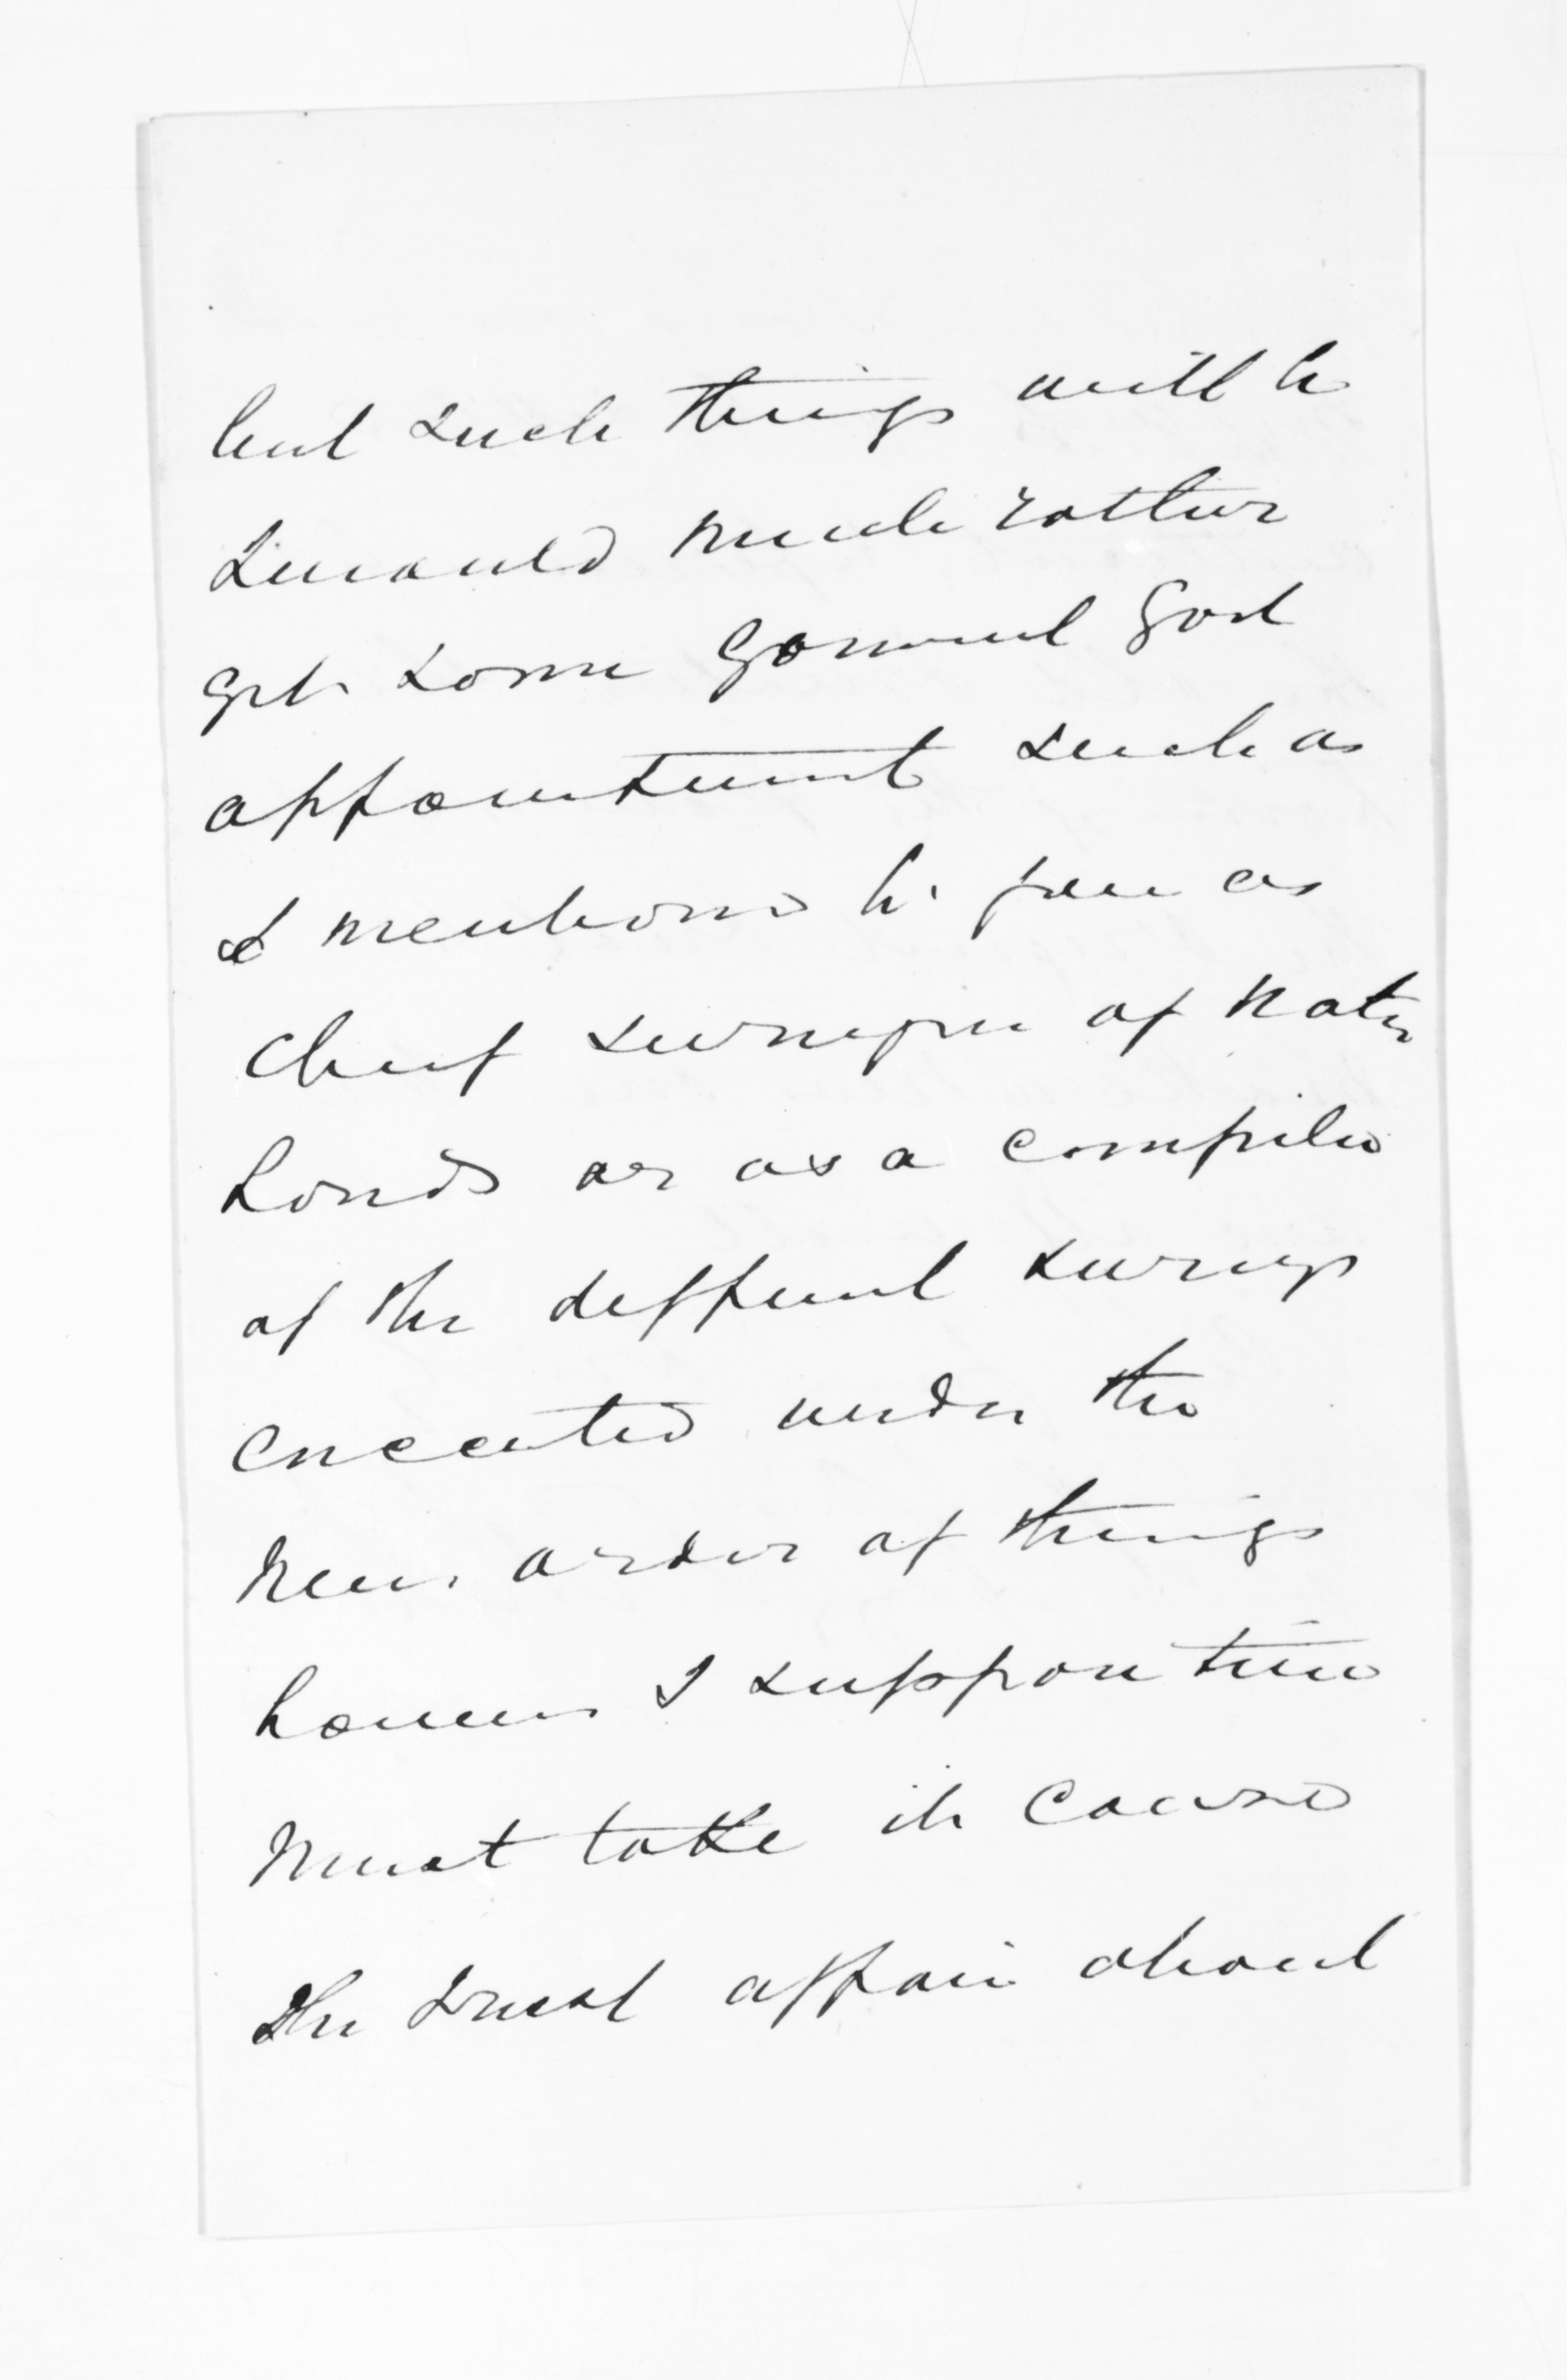 but such things will be
I would much rather
get some General Govt
appointment such as
I mentioned to you as
Chief Surveyor of Native
Lands or as a compiler
of the different surveys
executed under the
new order of things
however I suppose time
must take its course
The Trust affair about